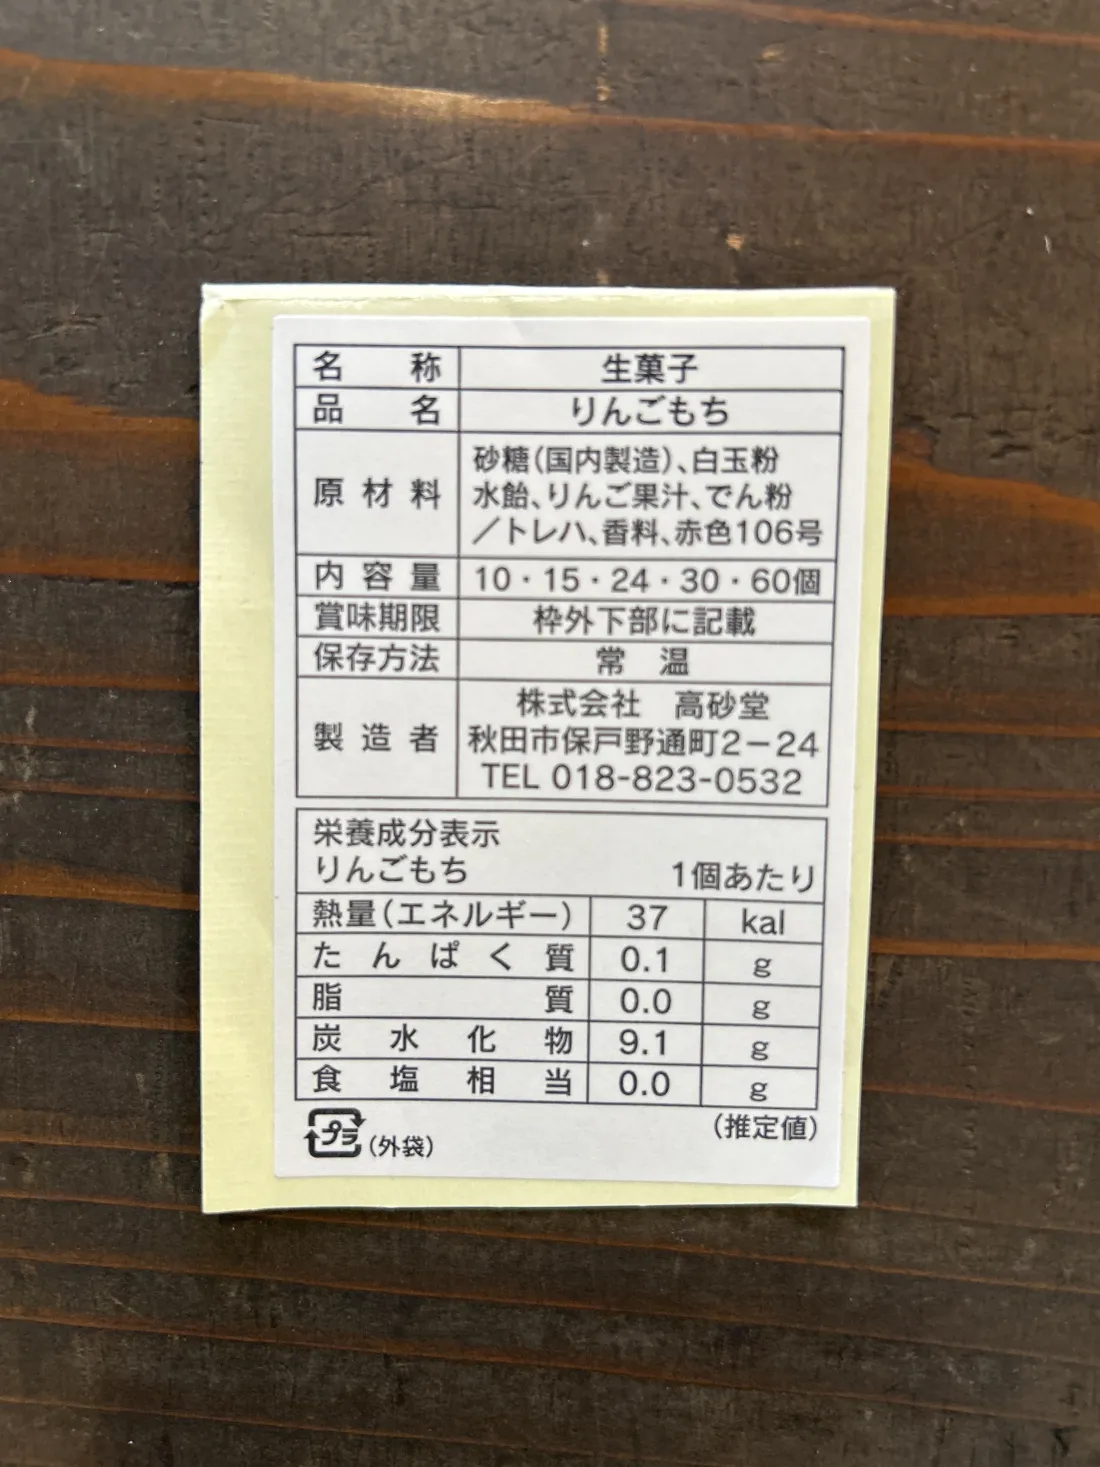 名称 生菓子
品名 りんごもち
原材料 砂糖(国内製造)、白玉粉
水飴、りんご果汁、でん粉
／トレハ、香料、赤色106号
内容量 10・15・24・30・60個
賞味期限 枠外下部に記載
保存方法 常温
製造者 株式会社 高砂堂
秋田市保戸野通町2−24
TEL 018-823-0532
栄養成分表示
りんごもち 1個あたり
熱量(エネルギー) 37 kal
たんぱく質 0.1 g
脂質 0.0 g
炭水化物 9.1 g
食塩相当 0.0 g
(推定値)
プラ (外袋)